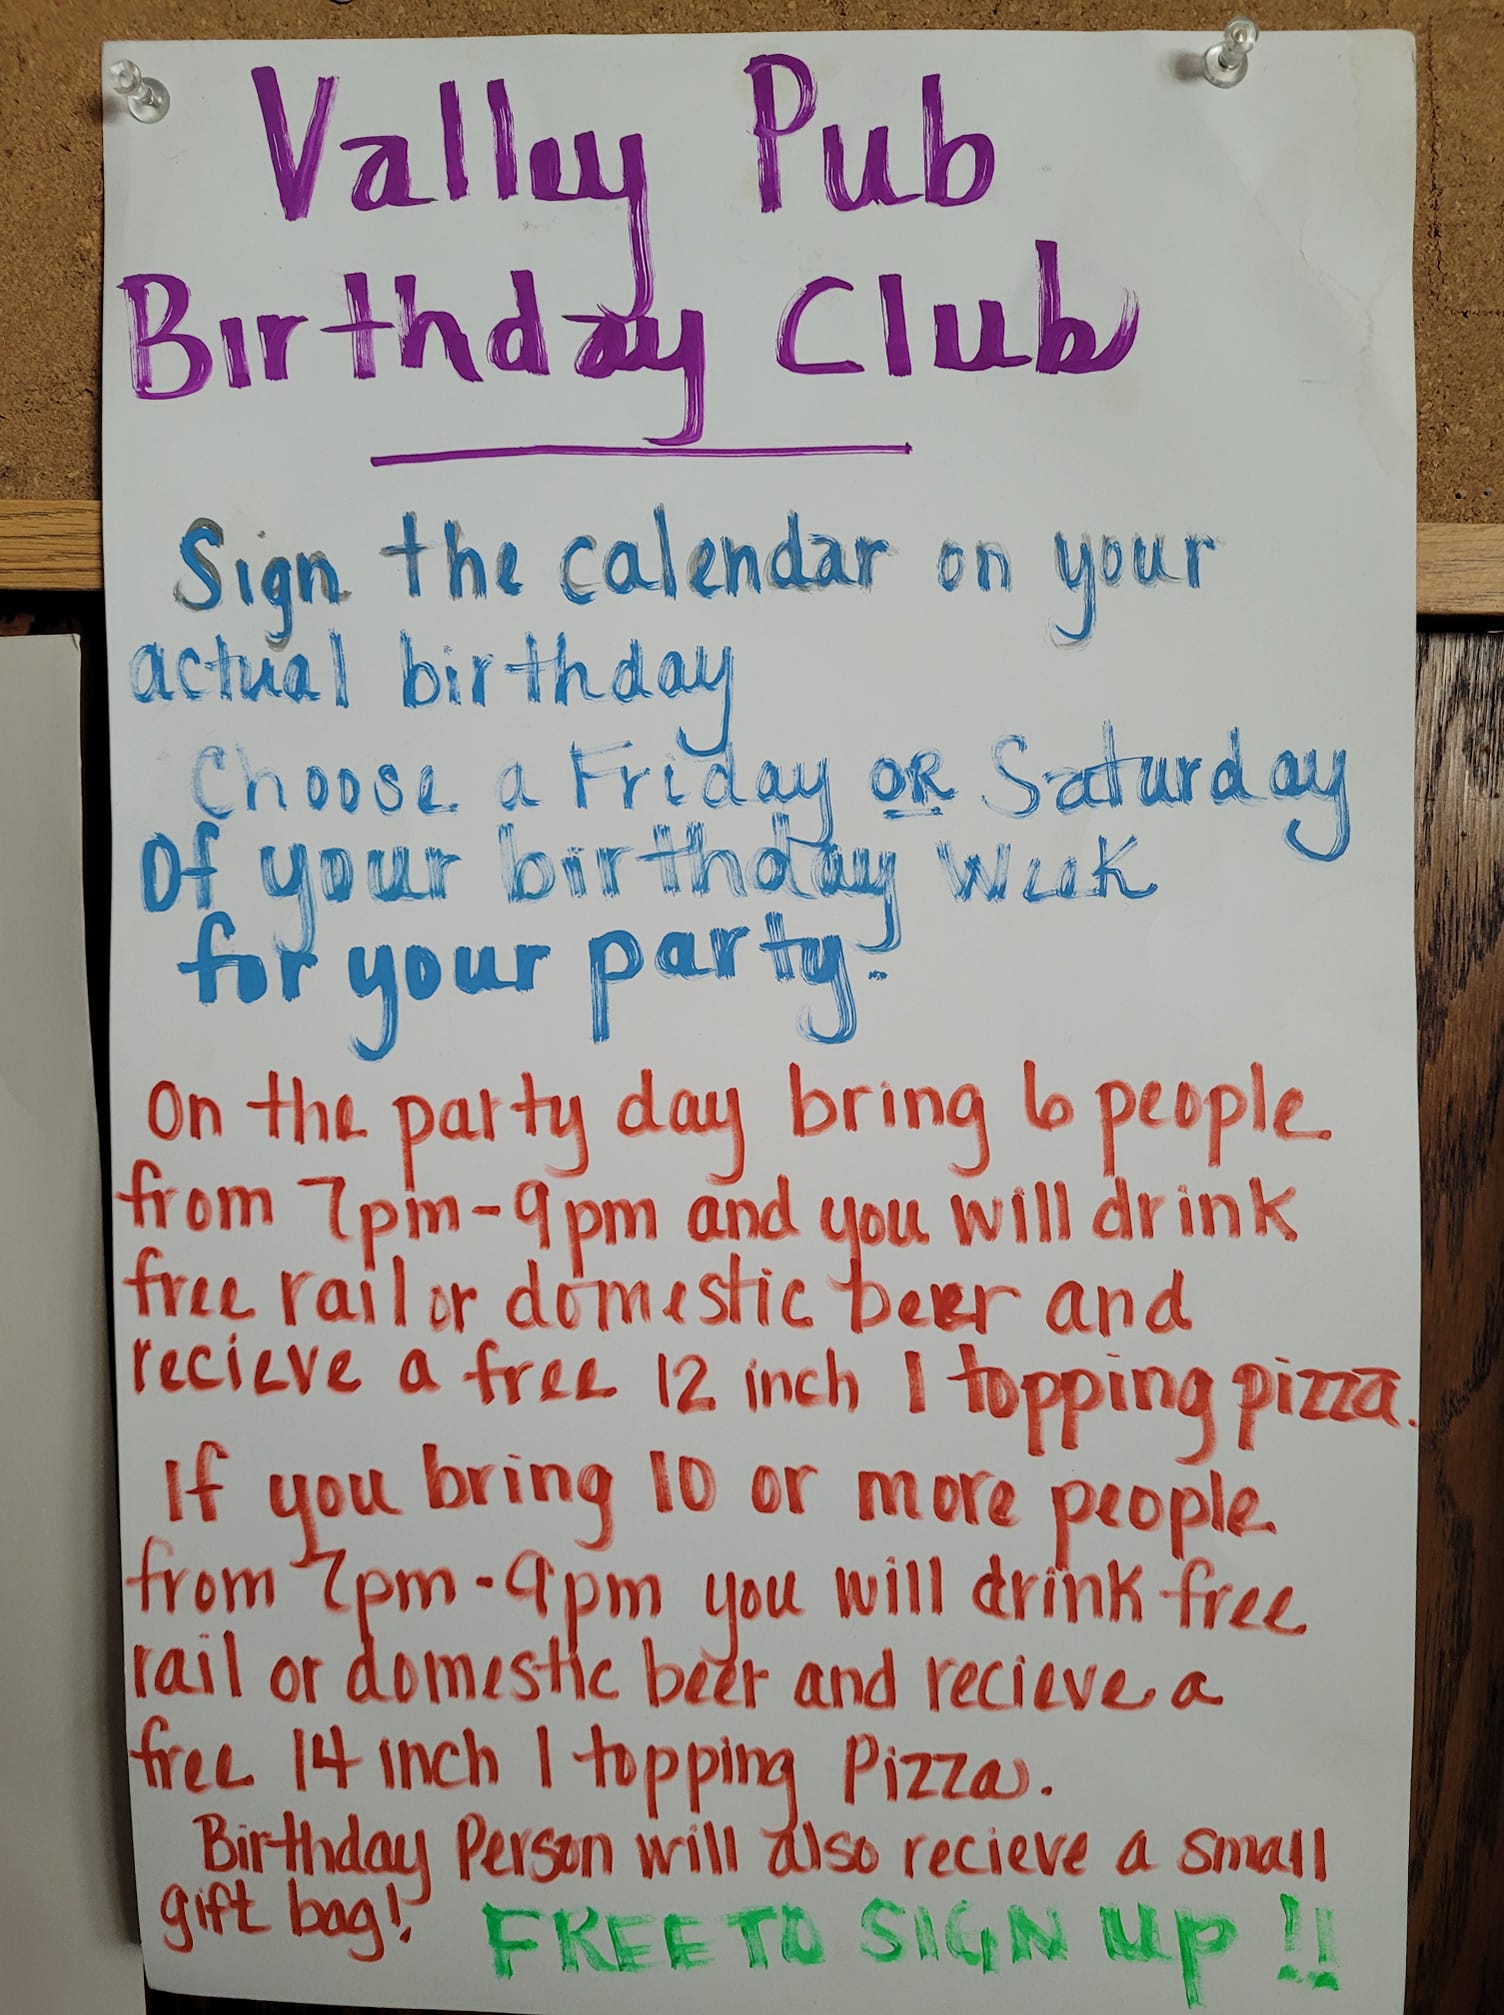 Valley Pub
Birthday Club
Sign the calendar on your
actual birthday
Choose a Friday OR Saturday
Of your birthday week
for your party.
On the party day bring 6 people
from 7pm-9pm and you will drink
free rail or domestic beer and
recieve a free 12 inch 1 topping pizza.
If you bring 10 or more people
from 7pm-9pm you will drink free
rail or domestic beer and recieve a
free 14 inch 1 topping Pizza.
Birthday Person will also recieve a small
gift bag! FREE TO SIGN up !!